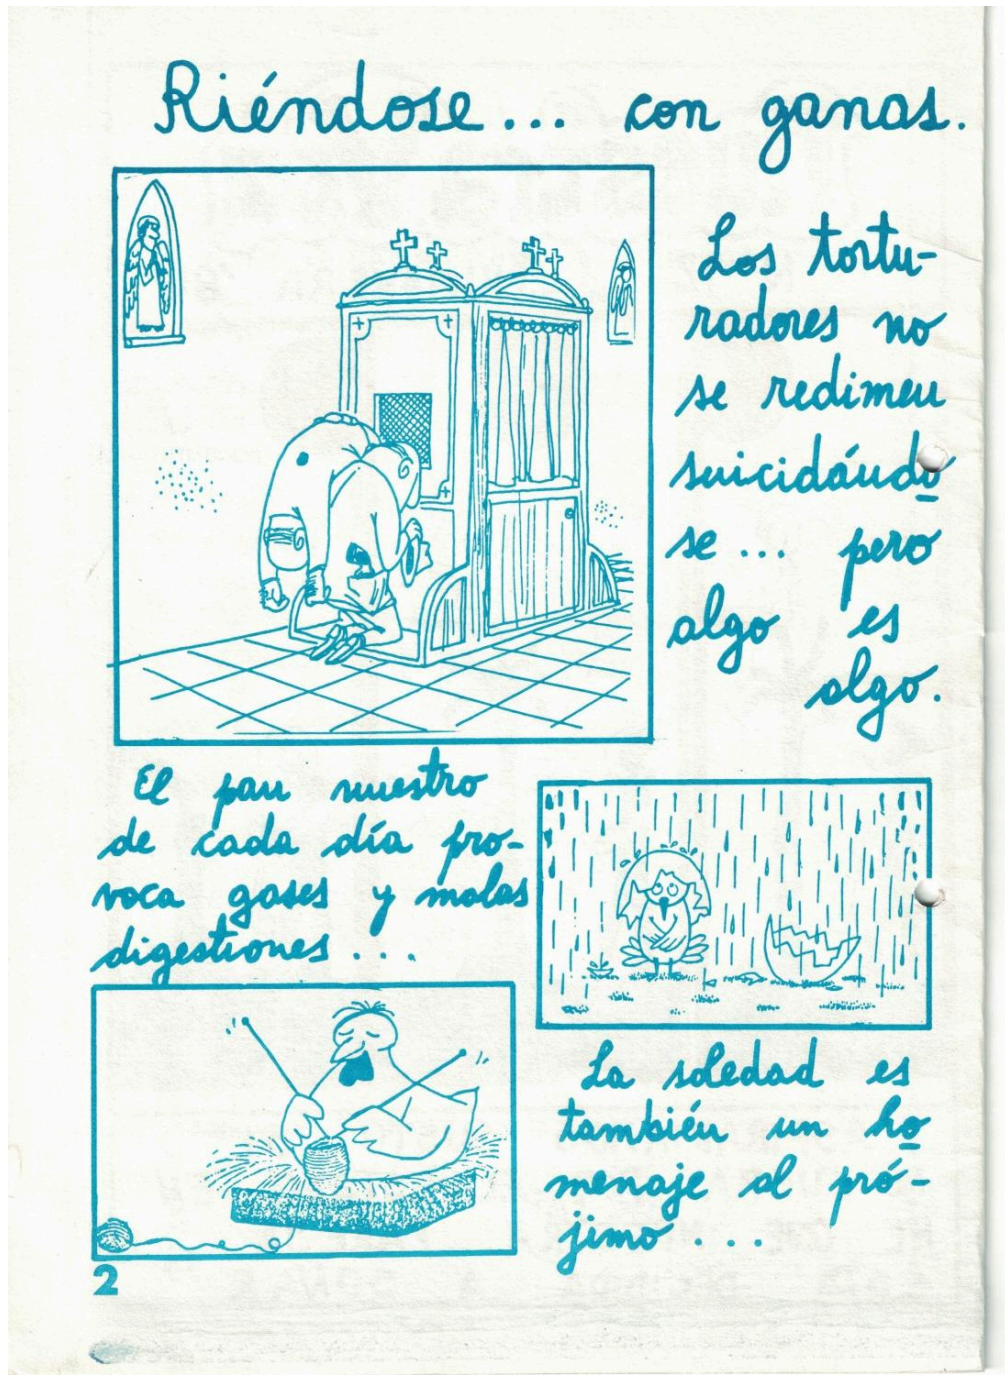 Riéndose... con ganas.
Los tortu-
radores no
se redimen
suicidándo
se ... pero
algo es
algo.
El pan nuestro
de cada día pro-
voca gases y malas
digestiones ...
La soledad es
también un ho
menaje al pró-
jimo ...
2